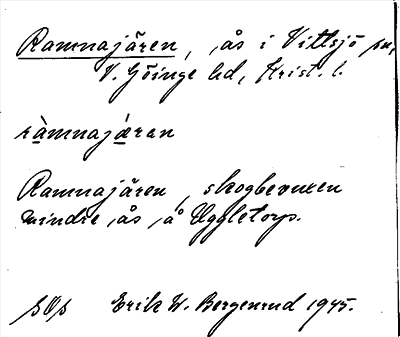 Ramnajären, ås i Vittsjö sn,
V. Göinge hd, Krist. l.
ràmnajæran
Ramnajären, skogbevuxen
mindre ås, å Uggletorp.
Erik W. Bergenrud 1945.